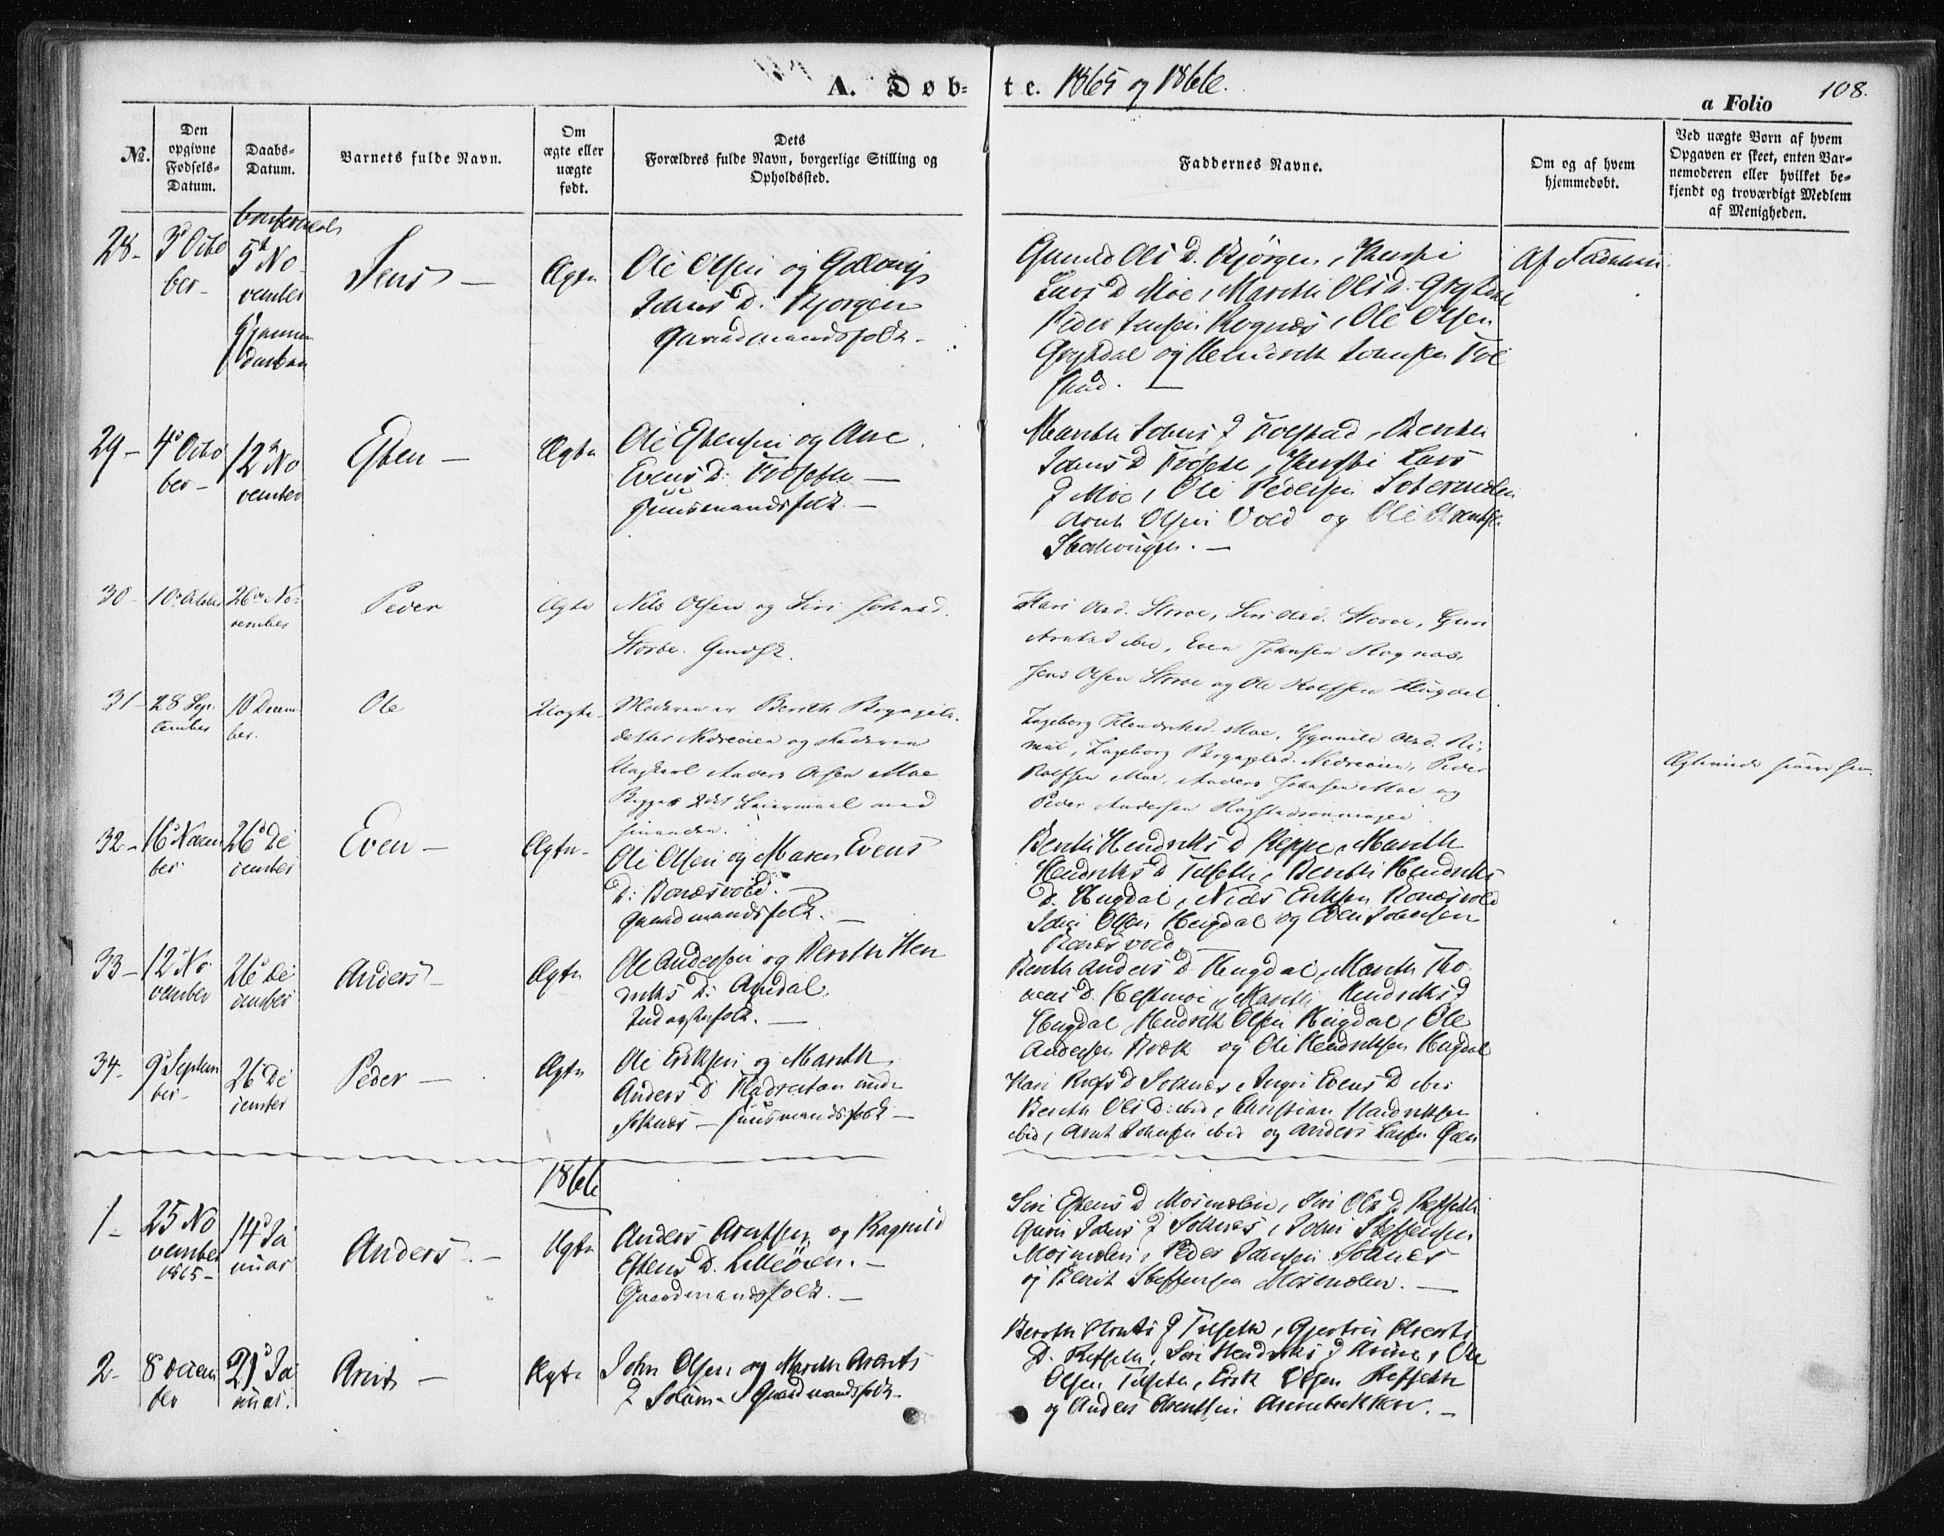 A. Døb-te. 1865 og 1866.
a Folio
108.
No.
Den opgivne Fødsels-Datum.
Daabs-Datum.
Barnets fulde Navn.
Om ægte eller uægte født.
Dets Forældres fulde Navn, borgerlige Stilling og Opholdssted.
Faddernes Navne.
Om og af hvem hjemmedøbt.
Ved uægte Børn af hvem Opgaven er skeet, enten Barnemoderen eller hvilket bekjendt og troværdigt Medlem af Menigheden.
28-
3d Octo
ber-
5t No
vember
Jens -
Ægte
Ole Olsen og
Johns D: Bjørgen
Gaardmandsfolk -
Gunild Ols D. Bjørgen,
Lars D Moe, Marith Ols D. Grytdal
Peder Jensen Rognæs, Ole Olsen
Grytdal og Hendrik Johnsen Fol
stad. -
Af Faderen
29-
4d Octo
ber-
12t No
vember
Esten -
Ægte
Ole Estensen og Ane
Evens D: Frøseth -
Huusmandsfolk. -
Marith Johns D Folstad, Berith
Johns D Frøseth, Lars
D Moe, Ole Pedersen
Arnt Olsen Vold og Ole
30-
10de October
26de No-
vember
Peder
Ægte
Nils Olsen og Siri Johnsd.
Storøe. Gmdsfk.
Kari Olsd. Storøe, Siri Olsd. Storøe, Guri
Arntsd ibid, Even Johnsen Rognæs,
Jens Olsen Storøe og Ole Rolfsen Hugdal
31-
28 Sep-
tember
10 Decem-
ber.
Ole
Uægte.
Moderen er Berith Bryngels-
datter Nedreøien og Faderen
Ungkarl Anders Olsen Moe
Begges 2det Leiermaal med
hinanden.
Ingeborg Hendriksd. Moe, Gunnild Olsd.
Ingeborg Bryngelsd. Nedreøien, Peder
Rolfsen Moe, Anders Johnsen Moe og
Peder Andersen
32-
16d Novem
ber
26d De
cember
Even -
Ægte-
Ole Olsen og Maren Evens
D: Bonæsvold. -
Gaardmandsfolk. -
Berith Hendriks D Reppe, Marith
Hendriks D Tilseth, Berith Hendriks
D. Hugdal, Nils Eriksen Bonæsvold
John Olsen Hugdal og Even Johnsen
Bonæsvold
33-
12d No
vember
26d De
cember
Anders -
Ægte
Ole Andersen og Berith Hen
driks D: Amdal,
Inderstfolk. -
Berith Anders D Hugdal, Marith Tho
mas D. Hestmoe, Marith Hendriks D
Hugdal, Hendrik Olsen Hugdal, Ole
Andersen og Ole Hendriksen Hugdal
34-
9d Septem
ber-
26d De
cember
Peder -
Ægte
Ole Eriksen og Marith
Anders D Fladreitan under
Soknæs - Huusmandsfolk -
Kari Rolfs D Soknæs, Ingri Evens D ibid
Berith Ols D: ibid, Christian Hendriksen
ibid, Arnt Johnsen ibid og Anders Larsen
1866
1-
25 No
vember
1865-
14d Ja
nuar
Anders. -
Ægte
Anders Arntsen og Ragnild
Estens D. Lilleøien. -
Gaardmandsfolk. -
Siri Estens D Mosmelen, Siri Ols D Refseth
Guri Johns D Soknes, John Steffensen
Mosmelen, Peder Johnsen Soknes
og Berit Steffensen Mosmelen. -
2-
8 Decem
ber
21d Ja
nuar.
Arnt -
Ægte
John Olsen og Marith Arnts
D - Gaardmandsfolk -
Berith Arnts D Tilseth, Gjertrud Arnts
D. Refseth, Siri Hendriks D, Ole
Olsen Tilseth, Erik Olsen Refseth
og Anders Arntsen -